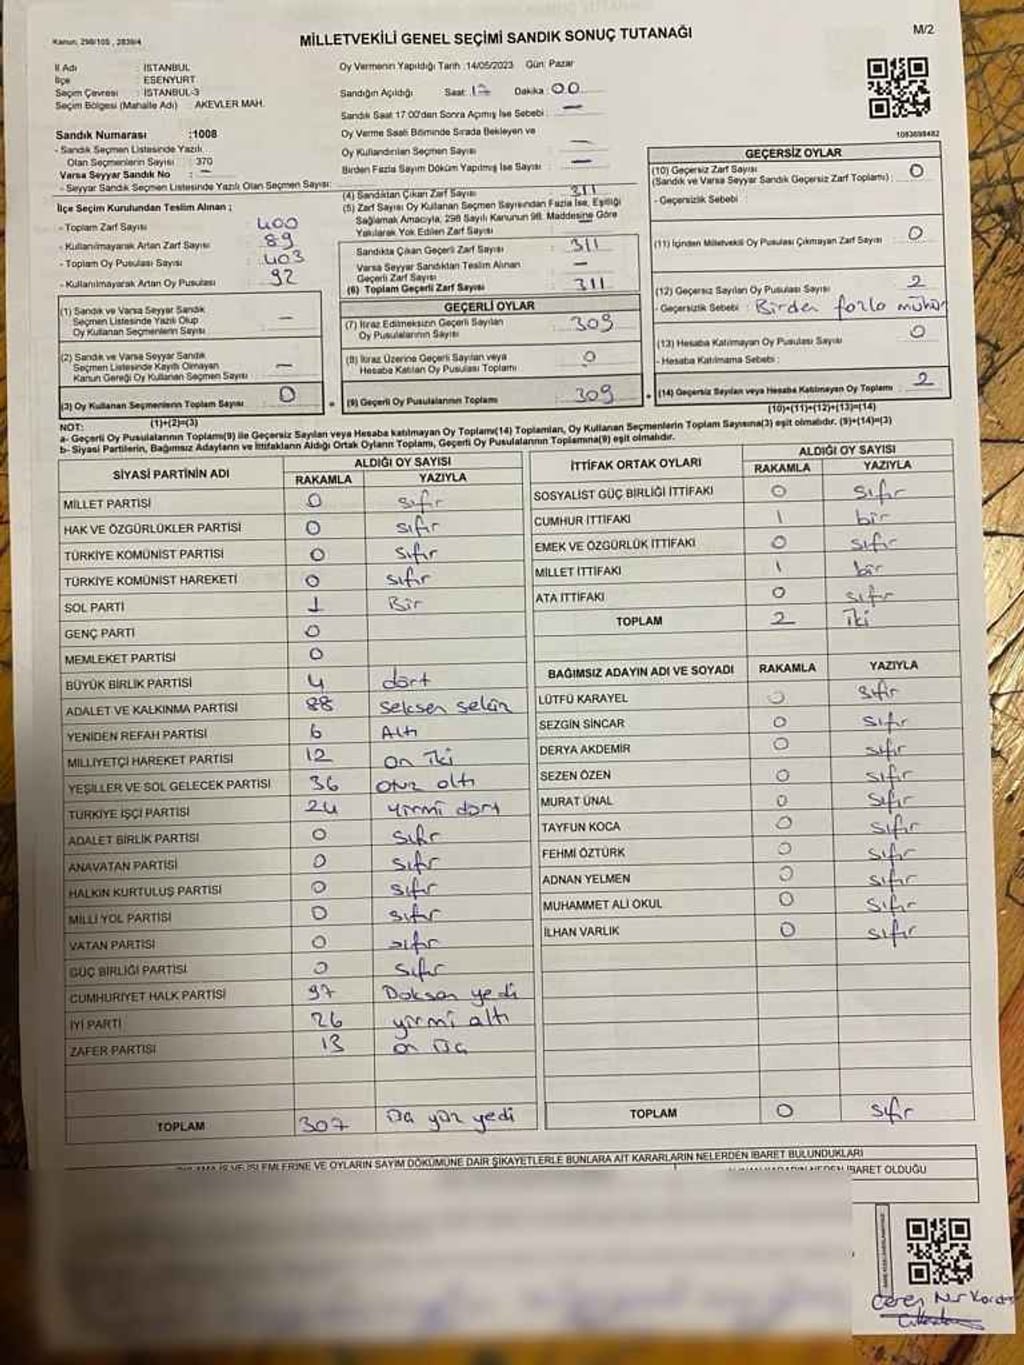 Kanun, 298/105 , 2839/4
MİLLETVEKİLİ GENEL SEÇİMİ SANDIK SONUÇ TUTANAĞI
M/2
İl Adı : İSTANBUL
İlçe : ESENYURT
Seçim Çevresi : İSTANBUL-3
Seçim Bölgesi (Mahalle Adı) : AKEVLER MAH.
Oy Vermenin Yapıldığı Tarih :14/05/2023 Gün: Pazar
Sandığın Açıldığı Saat: 17 Dakika : 00
Sandık Saat 17:00'den Sonra Açımış İse Sebebi : —
Oy Verme Saati Bitiminde Sırada Bekleyen ve
Oy Kullandırılan Seçmen Sayısı : —
Birden Fazla Sayım Döküm Yapılmış İse Sayısı : —
1083698482
Sandık Numarası :1008
- Sandık Seçmen Listesinde Yazılı
Olan Seçmenlerin Sayısı : 370
Varsa Seyyar Sandık No : —
- Seyyar Sandık Seçmen Listesinde Yazılı Olan Seçmen Sayısı:
İlçe Seçim Kurulundan Teslim Alınan ;
- Toplam Zarf Sayısı : 400
- Kullanılmayarak Artan Zarf Sayısı : 89
- Toplam Oy Pusulası Sayısı : 403
- Kullanılmayarak Artan Oy Pusulası : 92
(1) Sandık ve Varsa Seyyar Sandık
Seçmen Listesinde Yazılı Olup
Oy Kullanan Seçmenlerin Sayısı —
(2) Sandık ve Varsa Seyyar Sandık
Seçmen Listesinde Kayıtlı Olmayan
Kanun Gereği Oy Kullanan Seçmen Sayısı —
(3) Oy Kullanan Seçmenlerin Toplam Sayısı 0
(1)+(2)=(3)
(4) Sandıktan Çıkan Zarf Sayısı : 311
(5) Zarf Sayısı Oy Kullanan Seçmen Sayısından Fazla İse, Eşitliği
Sağlamak Amacıyla, 298 Sayılı Kanunun 98. Maddesine Göre
Yakılarak Yok Edilen Zarf Sayısı :
Sandıkta Çıkan Geçerli Zarf Sayısı : 311
Varsa Seyyar Sandıktan Teslim Alınan
Geçerli Zarf Sayısı : —
(6) Toplam Geçerli Zarf Sayısı : 311
GEÇERLİ OYLAR
(7) İtiraz Edilmeksizin Geçerli Sayılan
Oy Pusulalarının Sayısı : 309
(8) İtiraz Üzerine Geçerli Sayılan veya
Hesaba Katılan Oy Pusulası Toplamı : 0
(9) Geçerli Oy Pusulalarının Toplamı : 309
GEÇERSİZ OYLAR
(10) Geçersiz Zarf Sayısı 0
(Sandık ve Varsa Seyyar Sandık Geçersiz Zarf Toplamı) :
- Geçersizlik Sebebi :
(11) İçinden Milletvekili Oy Pusulası Çıkmayan Zarf Sayısı : 0
(12) Geçersiz Sayılan Oy Pusulası Sayısı : 2
- Geçersizlik Sebebi : Birden fazla mühür
(13) Hesaba Katılmayan Oy Pusulası Sayısı : 0
- Hesaba Katılmama Sebebi :
(14) Geçersiz Sayılan veya Hesaba Katılmayan Oy Toplamı : 2
(10)+(11)+(12)+(13)=(14)
NOT:
a- Geçerli Oy Pusulalarının Toplamı(9) ile Geçersiz Sayılan veya Hesaba katılmayan Oy Toplamı(14) Toplamları, Oy Kullanan Seçmenlerin Toplam Sayısına(3) eşit olmalıdır. (9)+(14)=(3)
b- Siyasi Partilerin, Bağımsız Adayların ve İttifakların Aldığı Ortak Oyların Toplamı, Geçerli Oy Pusulalarının Toplamına(9) eşit olmalıdır.
SİYASİ PARTİNİN ADI ALDIĞI OY SAYISI
RAKAMLA YAZIYLA
MİLLET PARTİSİ 0 sıfır
HAK VE ÖZGÜRLÜKLER PARTİSİ 0 sıfır
TÜRKİYE KOMÜNİST PARTİSİ 0 sıfır
TÜRKİYE KOMÜNİST HAREKETİ 0 sıfır
SOL PARTİ 1 Bir
GENÇ PARTİ 0
MEMLEKET PARTİSİ 0
BÜYÜK BİRLİK PARTİSİ 4 dört
ADALET VE KALKINMA PARTİSİ 88 seksen sekiz
YENİDEN REFAH PARTİSİ 6 Altı
MİLLİYETÇİ HAREKET PARTİSİ 12 on iki
YEŞİLLER VE SOL GELECEK PARTİSİ 36 otuz altı
TÜRKİYE İŞÇİ PARTİSİ 24 yirmi dört
ADALET BİRLİK PARTİSİ 0 sıfır
ANAVATAN PARTİSİ 0 sıfır
HALKIN KURTULUŞ PARTİSİ 0 sıfır
MİLLİ YOL PARTİSİ 0 sıfır
VATAN PARTİSİ 0 sıfır
GÜÇ BİRLİĞİ PARTİSİ 0 sıfır
CUMHURİYET HALK PARTİSİ 97 Doksan yedi
İYİ PARTİ 26 yirmi altı
ZAFER PARTİSİ 13 on üç
TOPLAM 307 Üç yüz yedi
İTTİFAK ORTAK OYLARI ALDIĞI OY SAYISI
RAKAMLA YAZIYLA
SOSYALİST GÜÇ BİRLİĞİ İTTİFAKI 0 sıfır
CUMHUR İTTİFAKI 1 bir
EMEK VE ÖZGÜRLÜK İTTİFAKI 0 sıfır
MİLLET İTTİFAKI 1 bir
ATA İTTİFAKI 0 sıfır
TOPLAM 2 iki
BAĞIMSIZ ADAYIN ADI VE SOYADI RAKAMLA YAZIYLA
LÜTFÜ KARAYEL 0 sıfır
SEZGİN SİNCAR 0 sıfır
DERYA AKDEMİR 0 sıfır
SEZEN ÖZEN 0 sıfır
MURAT ÜNAL 0 sıfır
TAYFUN KOCA 0 sıfır
FEHMİ ÖZTÜRK 0 sıfır
ADNAN YELMEN 0 sıfır
MUHAMMET ALİ OKUL 0 sıfır
İLHAN VARLIK 0 sıfır
TOPLAM 0 sıfır
VE İŞLEMLERİNE VE OYLARIN SAYIM DÖKÜMÜNE DAİR ŞİKAYETLERLE BUNLARA AİT KARARLARIN NELERDEN İBARET BULUNDUKLARI
İBARET OLDUĞU
Ceren Nur